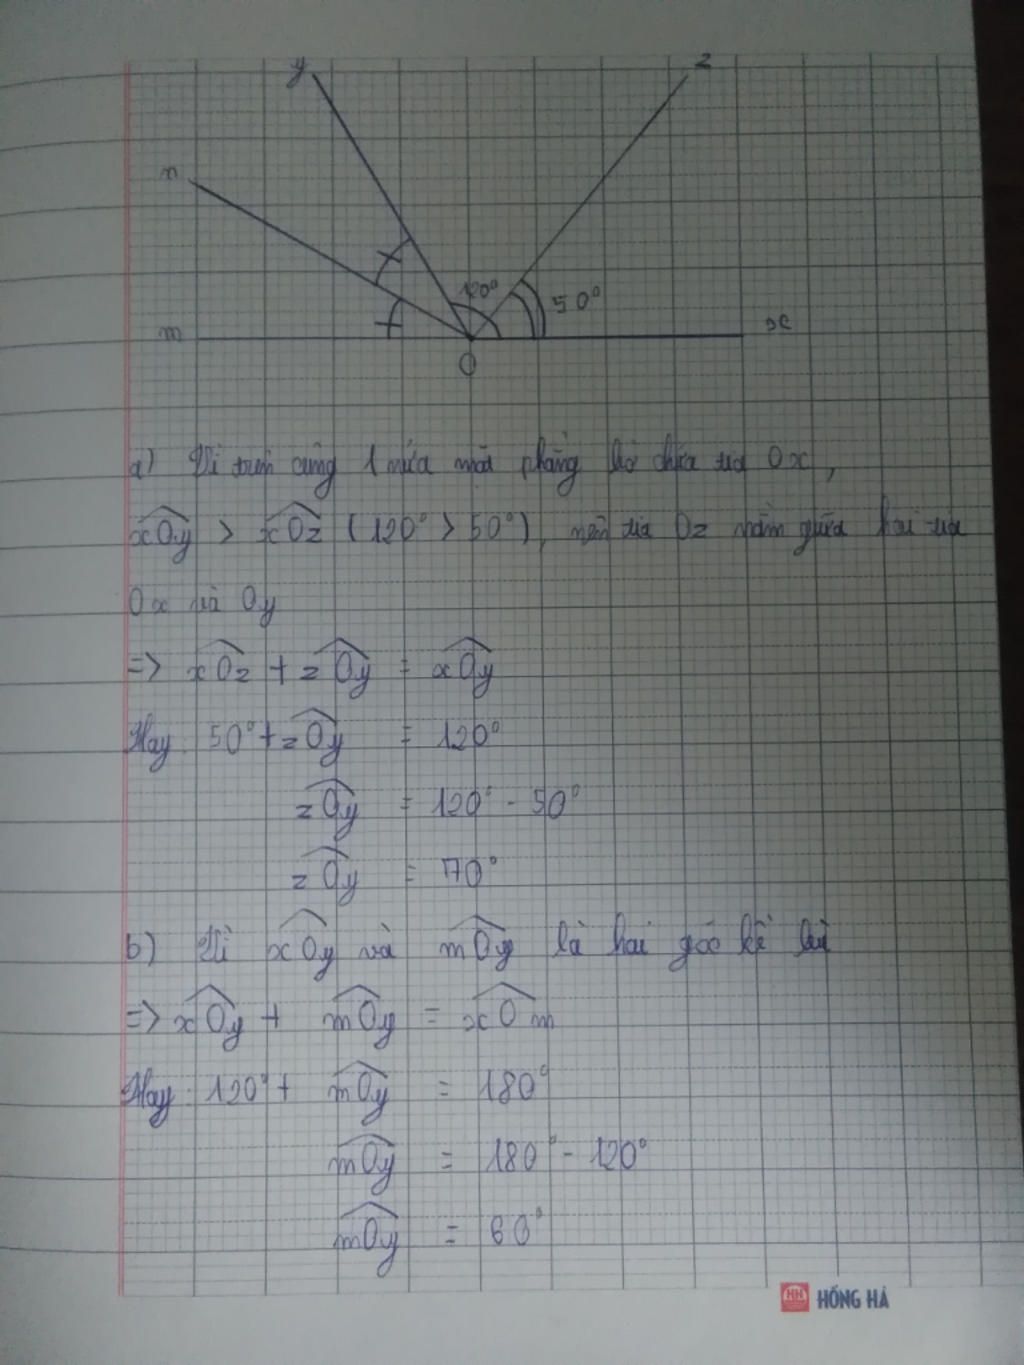 y
z
n
120°
50°
m
x
O
a) Vì trên cùng 1 nửa mặt phẳng bờ chứa tia Ox,
xOy > xOz (120° > 50°), nên tia Oz nằm giữa hai tia
Ox và Oy
=> xOz + zOy = xOy
Hay: 50° + zOy = 120°
zOy = 120° - 50°
zOy = 70°
b) Vì xOy và mOy là hai góc kề bù
=> xOy + mOy = xOm
Hay: 120° + mOy = 180°
mOy = 180° - 120°
mOy = 60°
HH HỒNG HÀ